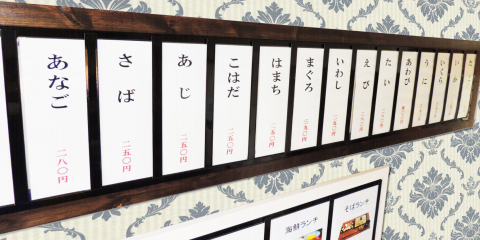 あなご 二八〇円
さば 二五〇円
あじ 二五〇円
こはだ 二五〇円
はまち 二五〇円
まぐろ 二五〇円
いわし
えび
たい
あわび
うに
いくら
いか
海鮮ランチ
そばランチ